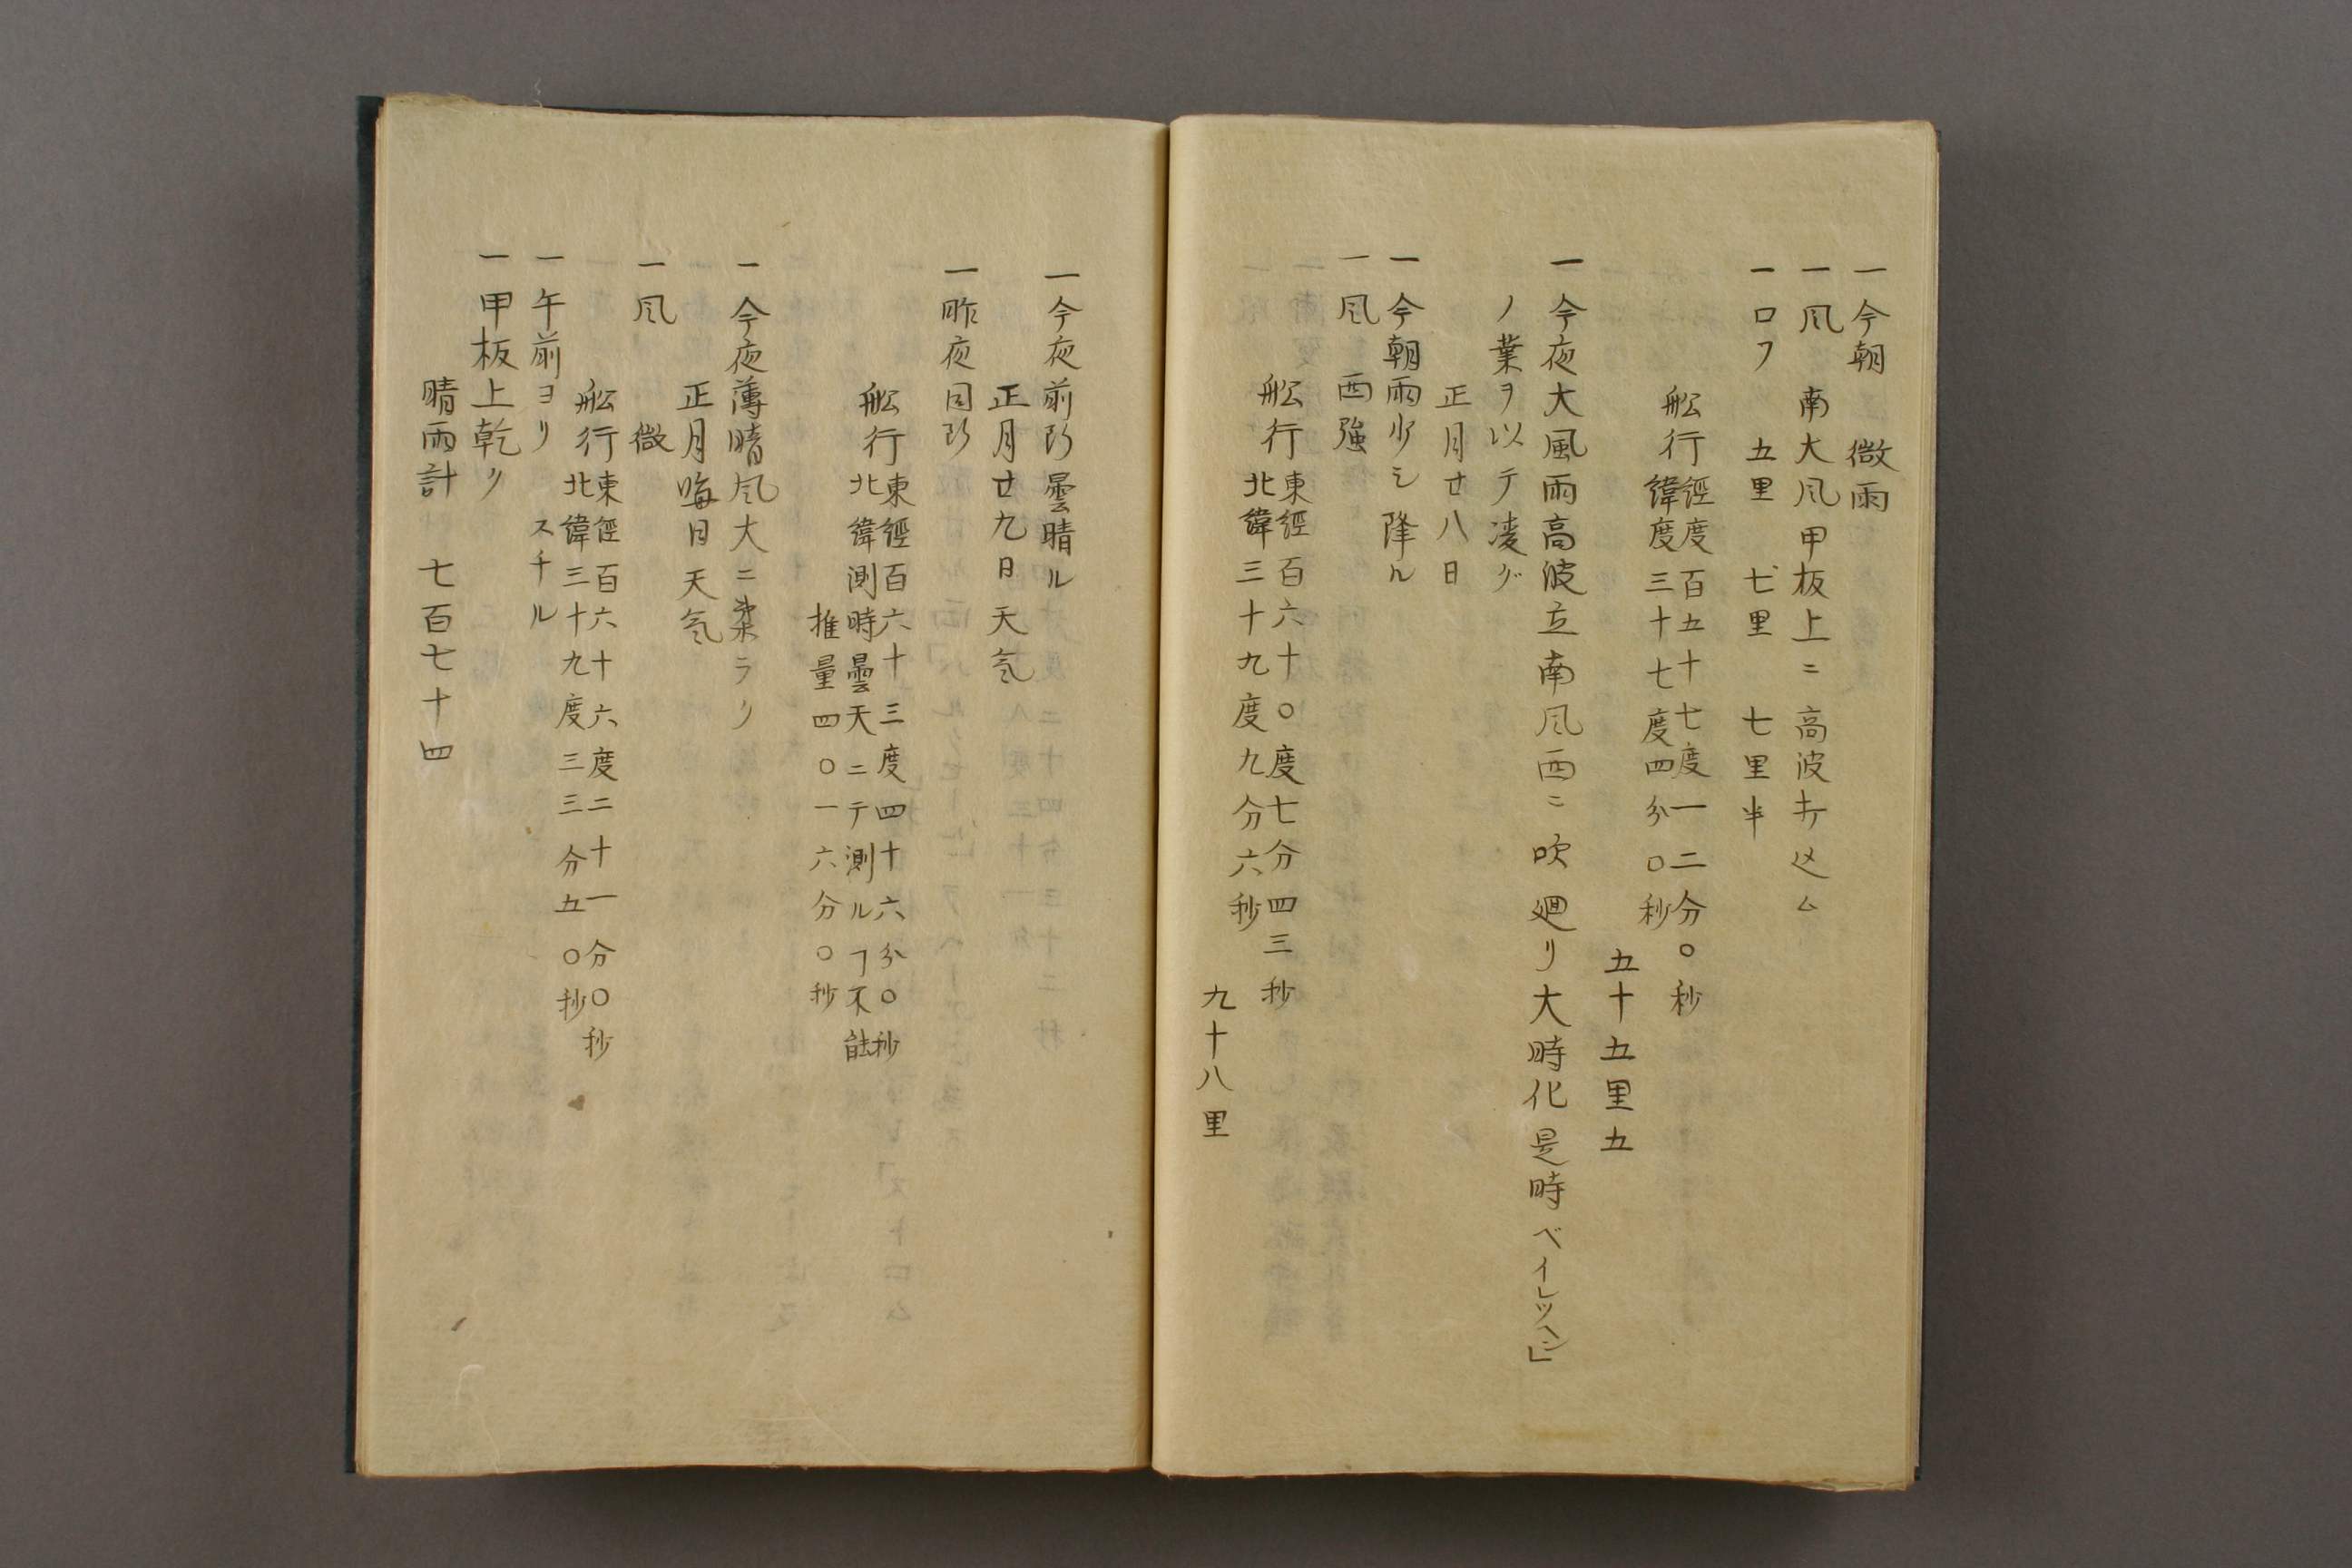 一今朝 微雨
一風 南大風甲板上ニ高波打込ム
一ロフ 五里 七里 七里半
船行 經度百五十七度一二分〇秒
緯度三十七度四分〇秒
五十五里五
一今夜大風雨高波立南風西ニ吹廻リ大時化是時ベイレツヘン」
ノ業ヲ以テ凌グ
正月廿八日
一今朝雨少シ降ル
一風 西強
船行 東經百六十〇度七分四三秒
北緯三十九度九分六秒
九十八里
一今夜前断曇晴ル
正月廿九日 天氣
一昨夜同断
船行 東經百六十三度四十六分〇秒
北緯測時曇天ニテ測ルヿ不能
推量四〇一六分〇秒
一今夜薄晴風大ニ柔ラリ
正月晦日 天氣
一風 微
船行 東經百六十六度二十一分〇秒
北緯三十九度三三分五〇秒
一午前ヨリ スチル
一甲板上乾リ
晴雨計 七百七十四